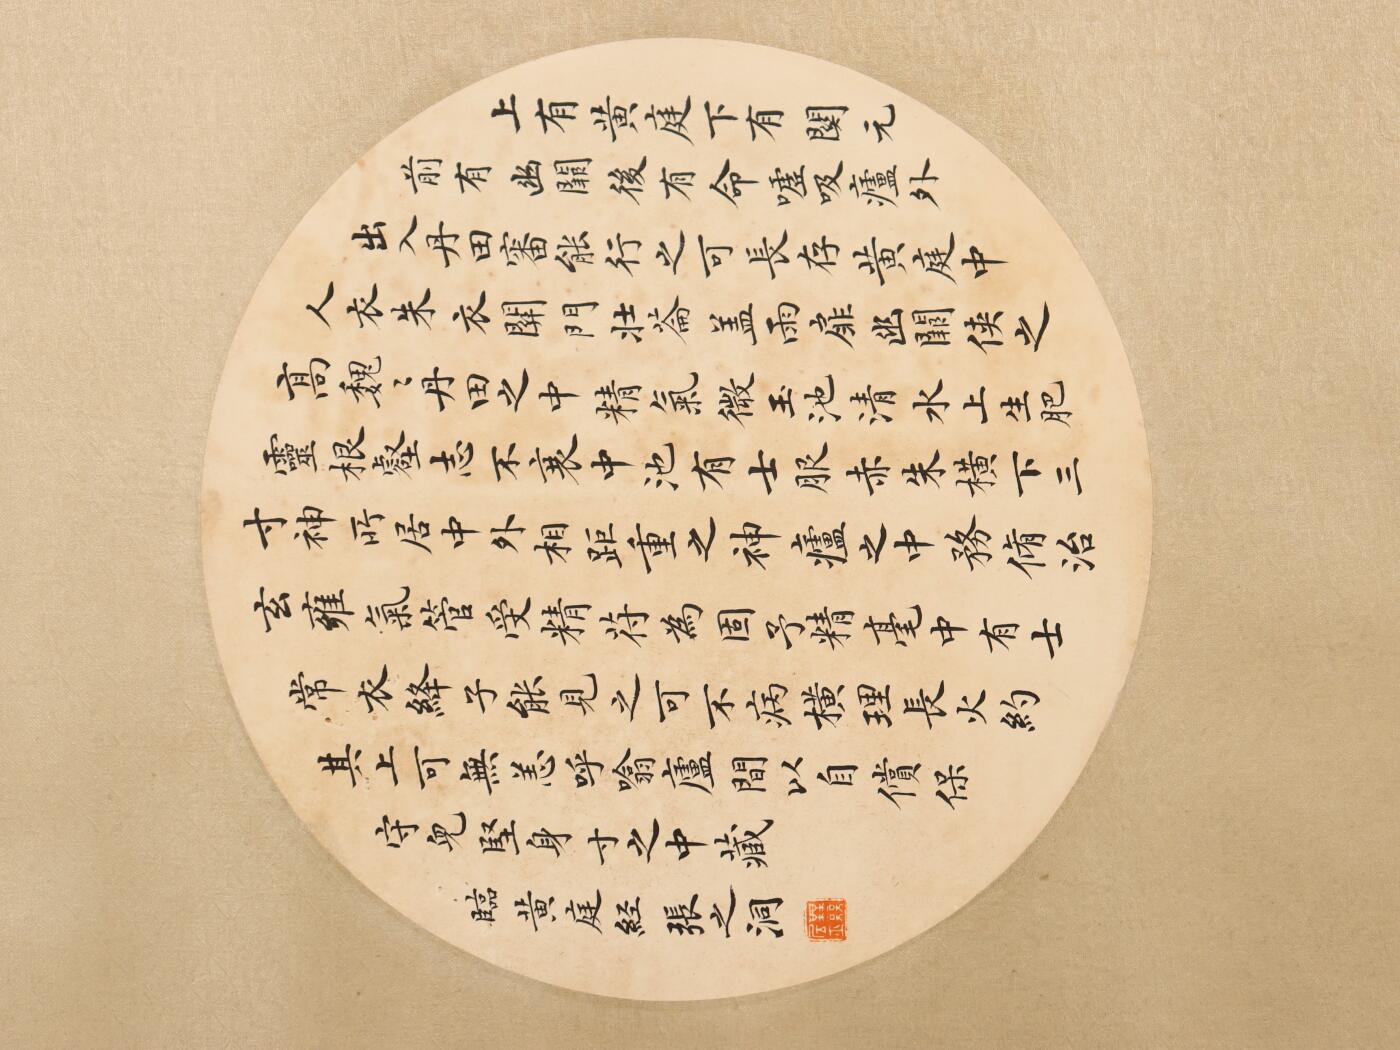 上有黄庭下有関元
前有幽關後有命嘘吸廬外
出入丹田審能行之可長存黄庭中
人衣朱衣關門壮蘥盖兩扉幽關侠之
高魏〻丹田之中精氣微玉池清水上生肥
靈根堅志不衰中池有士服赤朱横下三
寸神所居中外相距重之神廬之中務脩治
玄雍氣管受精苻為固子精宅中有士
常衣絳子能見之可不病横理長尺約
其上可無恙呼噏廬間以自償保
守皃堅身寸之中藏
臨黄庭経張之洞